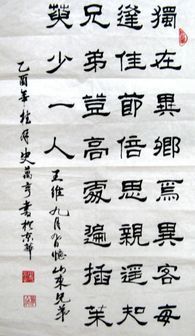 獨在異鄉為異客每
逢佳節倍思親遙知
兄弟登高處遍插茱
萸少一人
王維九月九日憶山東兄弟
乙酉年桂月史萬亨書於京華